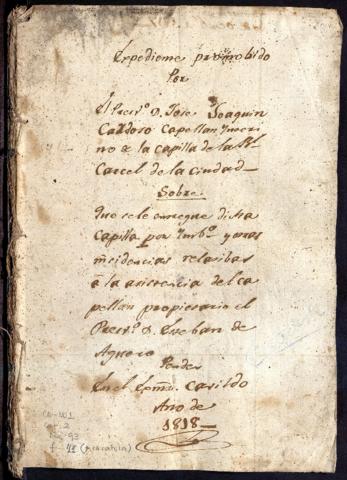 Expediente promobido
Por
El Presv.º D. Jose Joaquin
Cardoso Capellan Interi-
no de la capilla de la Rl
Carcel de la ciudad
Sobre
Que se le entregue dicha
capilla por Imb.º y otras
insidencias relatibas
a la asistencia del ca
pellan propietario el
Presv.º D. Esteban de
Aguero
Pende
En el Exmo. Cavildo
Ano de
1818
CO-
2
93
f. 48 (